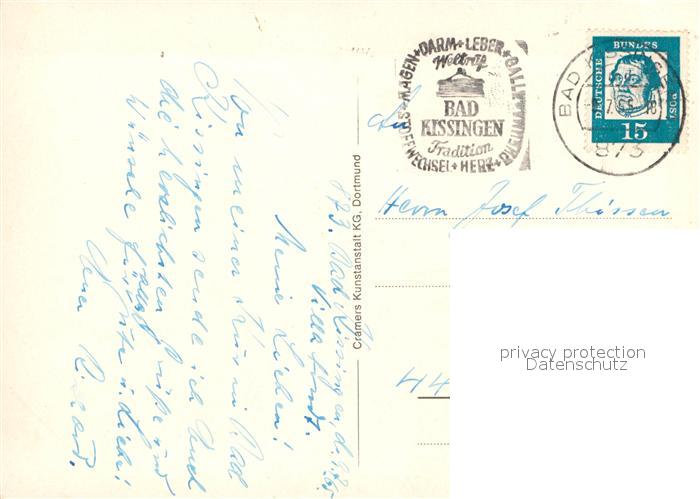 873 Bad Kissingen, d. 
Villa Fondt.
Meine Lieben!
Von meiner Kur in Bad
Kissingen sende ich Euch
die herzlichsten Grüße und
Wünsche für alles
Gute u. Liebe!
Euer
Cramers Kunstanstalt KG. Dortmund
MAGEN+DARM+LEBER+GALLE
Weltruf
BAD
KISSINGEN
Tradition
STOFFWECHSEL+HERZ+RHEUMA
BAD KISSINGEN
873
DEUTSCHE
BUNDES
POST
15
An
Herrn Josef Thissen
44
privacy protection
Datenschutz